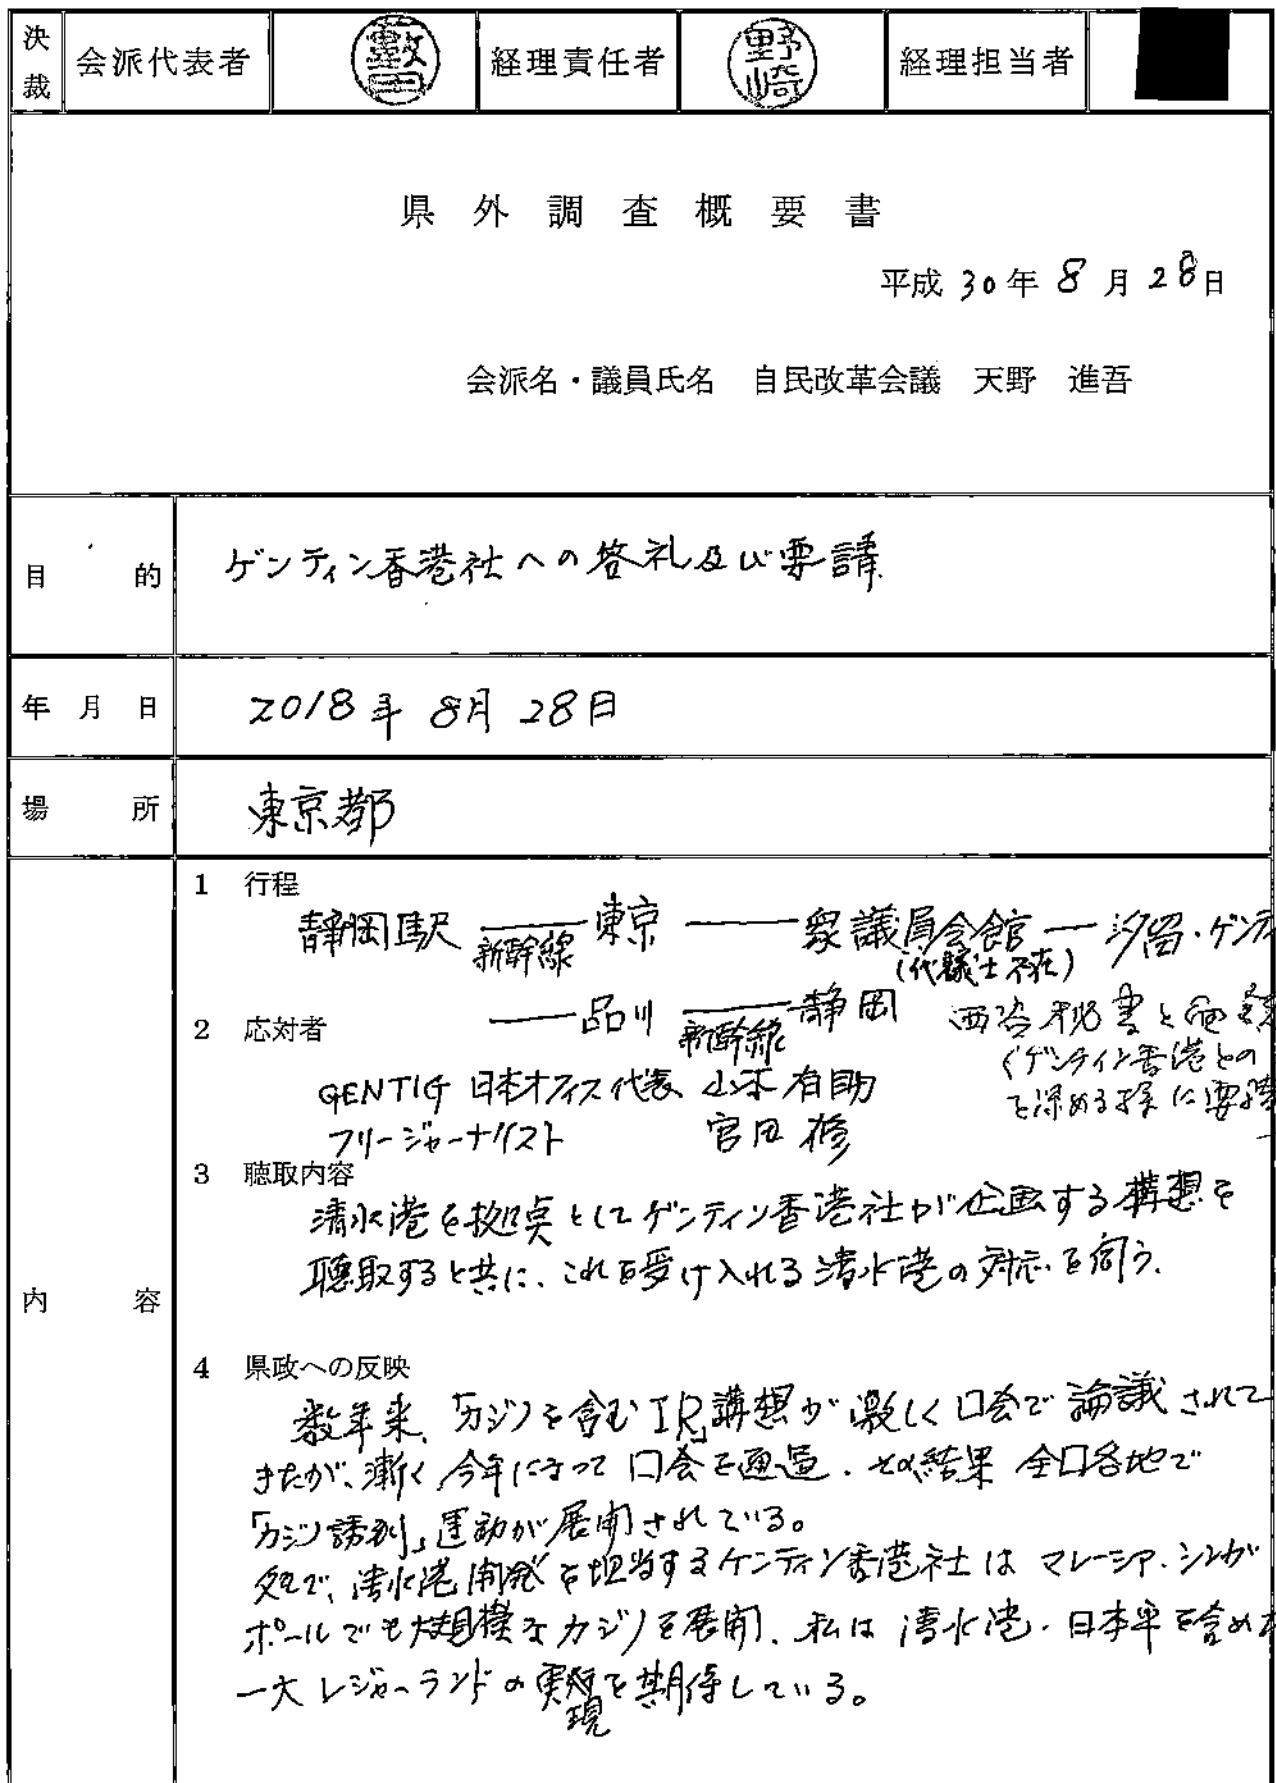 決裁 会派代表者 藪田 経理責任者 野崎 経理担当者
県外調査概要書
平成30年8月28日
会派名・議員氏名 自民改革会議 天野 進吾
目的 ゲンティン香港社への答礼及び要請
年月日 2018年8月28日
場所 東京都
内容
1 行程
静岡駅 ―― 東京 ―― 衆議員会館 ― 汐留・ゲンティ
新幹線
(代議士不在)
―― 品川 ―― 静岡
新幹線
西谷秘書と面
(ゲンティン香港との
を深める様に要請
2 応対者
GENTIG 日本オフィス代表 山本 有助
フリージャーナリスト 宮田 修
3 聴取内容
清水港を拠点としてゲンティン香港社が企画する構想を
聴取すると共に、これを受け入れる清水港の対応を伺う.
4 県政への反映
数年来、「カジノを含むIR」構想が激しく口会で論議されて
きたが、漸く今年になって口会を通過.その結果 全口各地で
「カジノ誘致」運動が展開されている。
処で、清水港開発を担当するゲンティン香港社は マレーシア、シンガ
ポールでも大規模なカジノを展開、私は清水港・日本平を含めた
一大レジャーランドの実現を期待している。